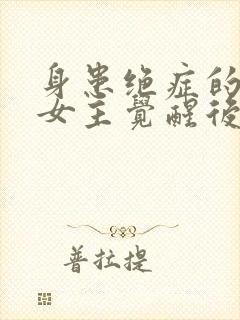 身患绝症的
女主覺醒後
普拉提